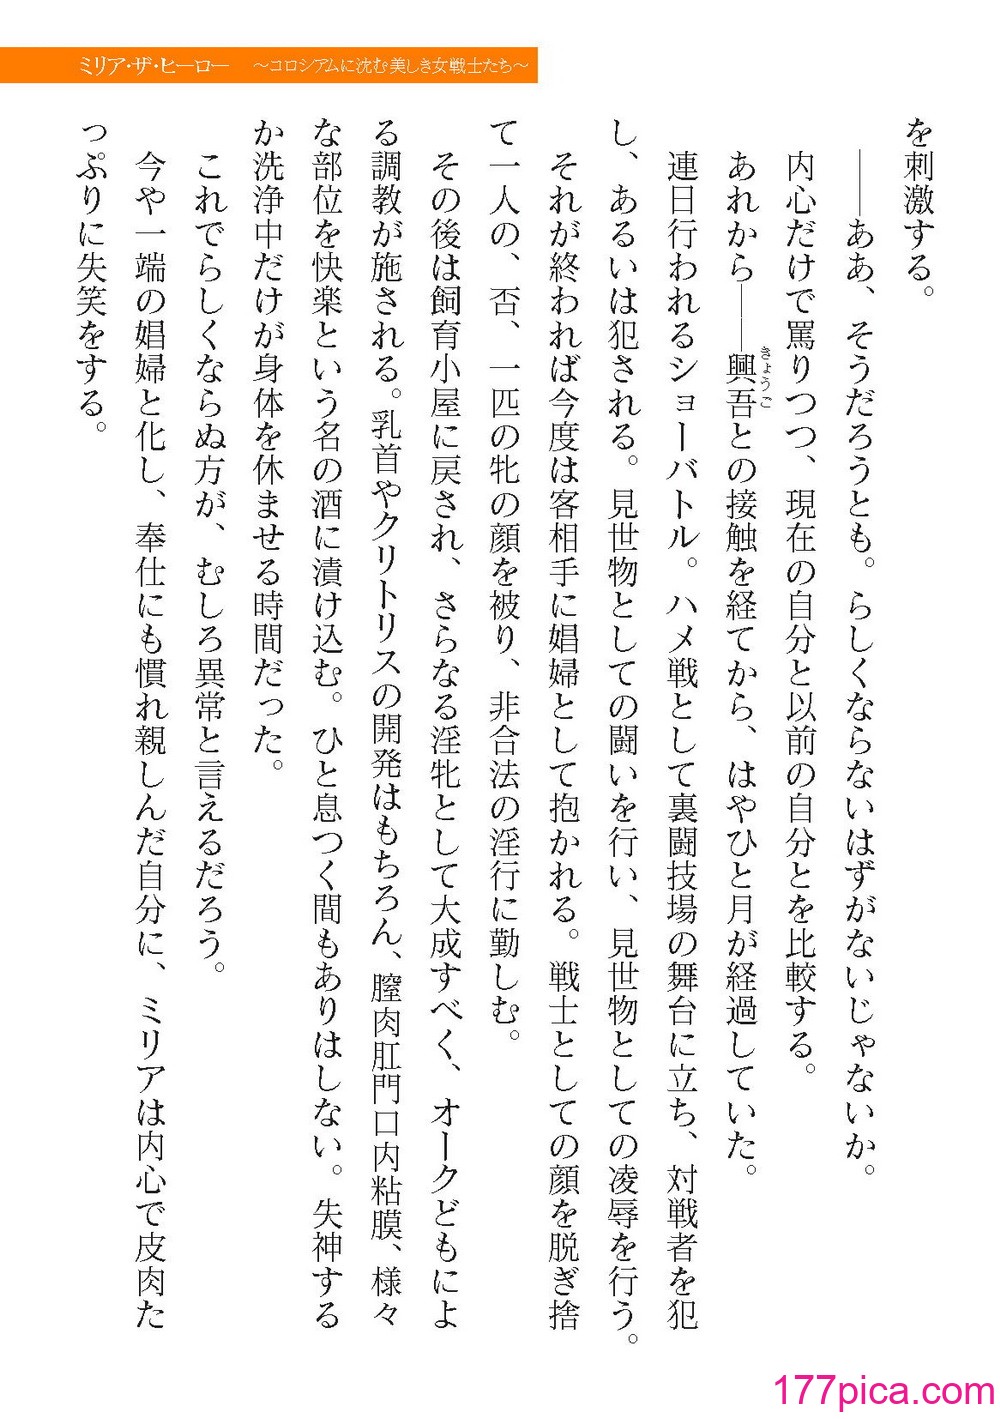 ミリア・ザ・ヒーロー ～コロシアムに沈む美しき女戦士たち～
を刺激する。
――ああ、そうだろうとも。らしくならないはずがないじゃないか。
内心だけで罵りつつ、現在の自分と以前の自分とを比較する。
あれから――興吾きょうごとの接触を経てから、はやひと月が経過していた。
連日行われるショーバトル。ハメ戦として裏闘技場の舞台に立ち、対戦者を犯
し、あるいは犯される。見世物としての闘いを行い、見世物としての凌辱を行う。
それが終われば今度は客相手に娼婦として抱かれる。戦士としての顔を脱ぎ捨
て一人の、否、一匹の牝の顔を被り、非合法の淫行に勤しむ。
その後は飼育小屋に戻され、さらなる淫牝として大成すべく、オークどもによ
る調教が施される。乳首やクリトリスの開発はもちろん、膣肉肛門口内粘膜、様々
な部位を快楽という名の酒に漬け込む。ひと息つく間もありはしない。失神する
か洗浄中だけが身体を休ませる時間だった。
これでらしくならぬ方が、むしろ異常と言えるだろう。
今や一端の娼婦と化し、奉仕にも慣れ親しんだ自分に、ミリアは内心で皮肉た
っぷりに失笑をする。
177pica.com